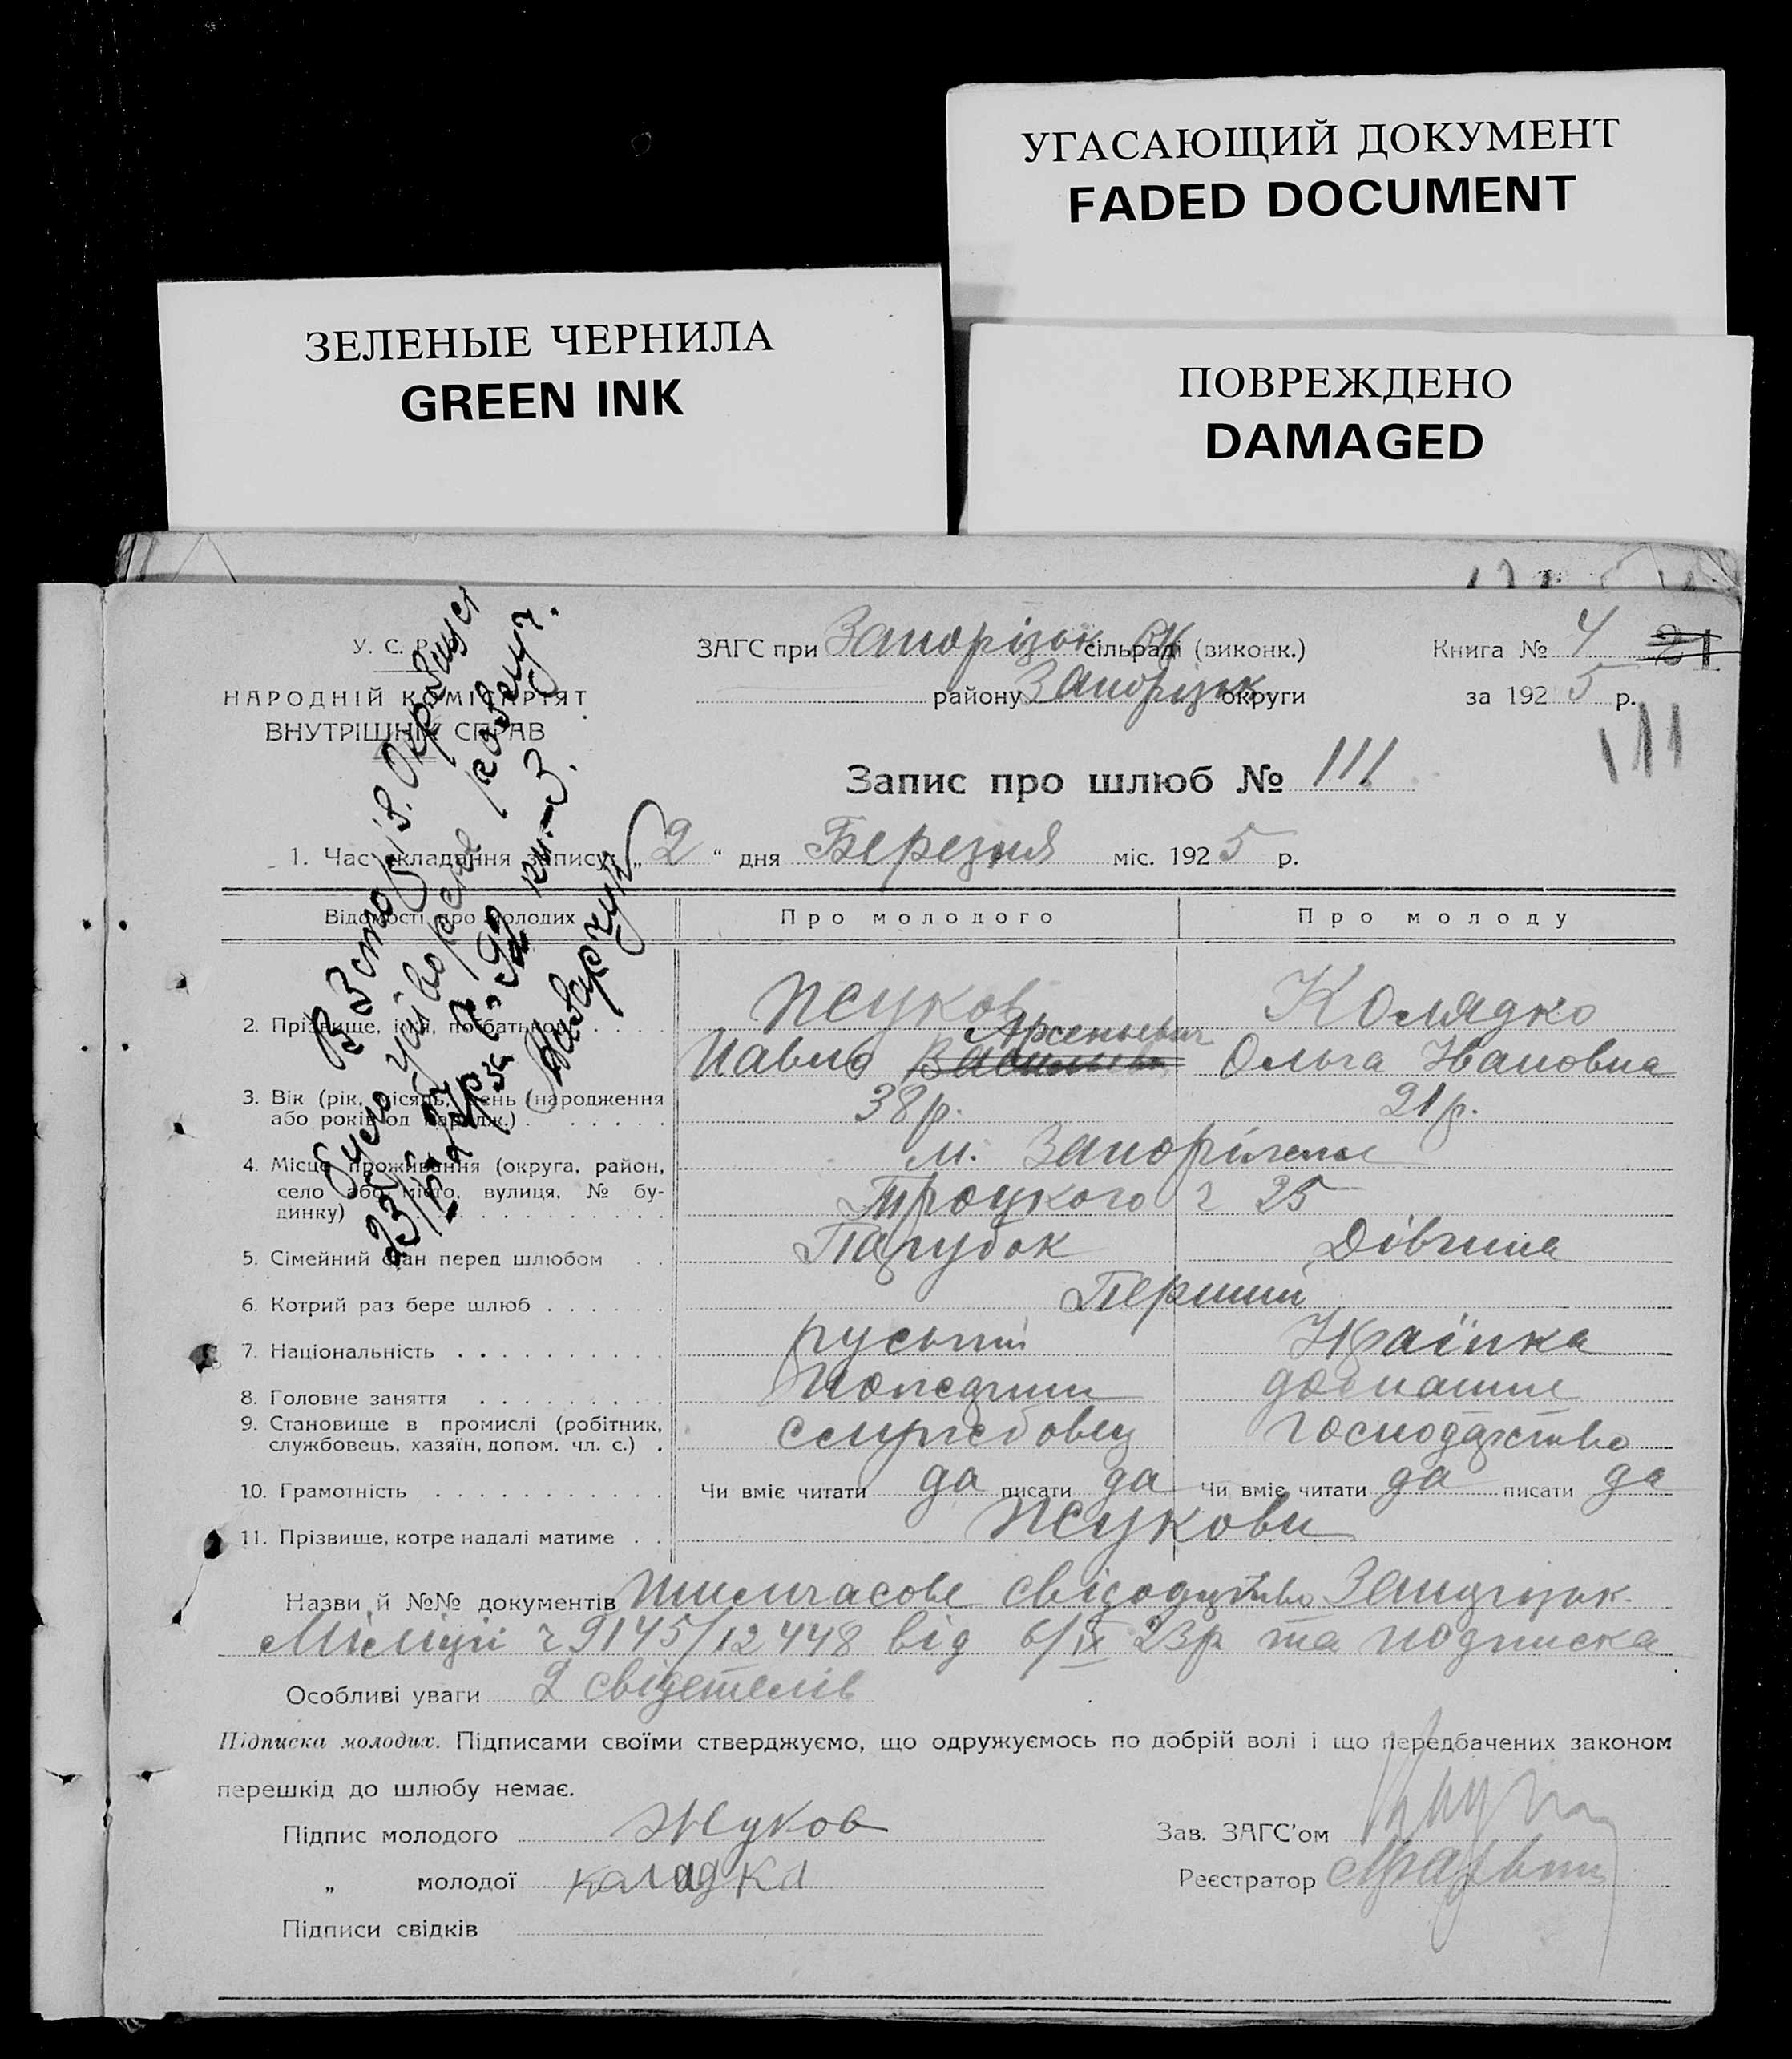 УГАСАЮЩИЙ ДОКУМЕНТ
FADED DOCUMENT
ЗЕЛЕНЫЕ ЧЕРНИЛА
GREEN INK
ПОВРЕЖДЕНО
DAMAGED
У. С. Р. Р.
НАРОДНІЙ КОМІСАРІЯТ
ВНУТРІШНІХ СПРАВ
ЗАГС при Запорізьк сільраді (виконк.)
району Запорізьк округи
Книга № 4 21
за 1925 р.
111
Запис про шлюб № 111
1. Час складання запису: „2“ дня Березня міс. 1925 р.
Відомості про молодих Про молодого Про молоду
2. Прізвище, ім'я, по батькові Жуков Колядко
Арсеньевич
Павло Ольга Івановна
3. Вік (рік, місяць, день народження або років од народж.) 38 р. 21 р.
4. Місце проживання (округа, район, село або місто, вулиця, № будинку) м. Запоріжжя
Троцкого ч 25
5. Сімейний стан перед шлюбом Парубок Дівчина
6. Котрий раз бере шлюб Перший
7. Національність руський Украінка
8. Головне заняття домашнє
9. Становище в промислі (робітник, службовець, хазяїн, допом. чл. с.) службовец господарство
10. Грамотність Чи вміє читати да писати да Чи вміє читати да писати да
11. Прізвище, котре надалі матиме Жукови
Назви й №№ документів тимчасове свідоцтво Запоріжськ.
Міліції ч 9145/12448 від 6/IX 23р та подписка
Особливі уваги 2 свідетелів
Підписка молодих. Підписами своїми стверджуємо, що одружуємось по добрій волі і що передбачених законом
перешкід до шлюбу немає.
Підпис молодого Жуков
„ молодої коладка
Підписи свідків
Зав. ЗАГС'ом
Реєстратор